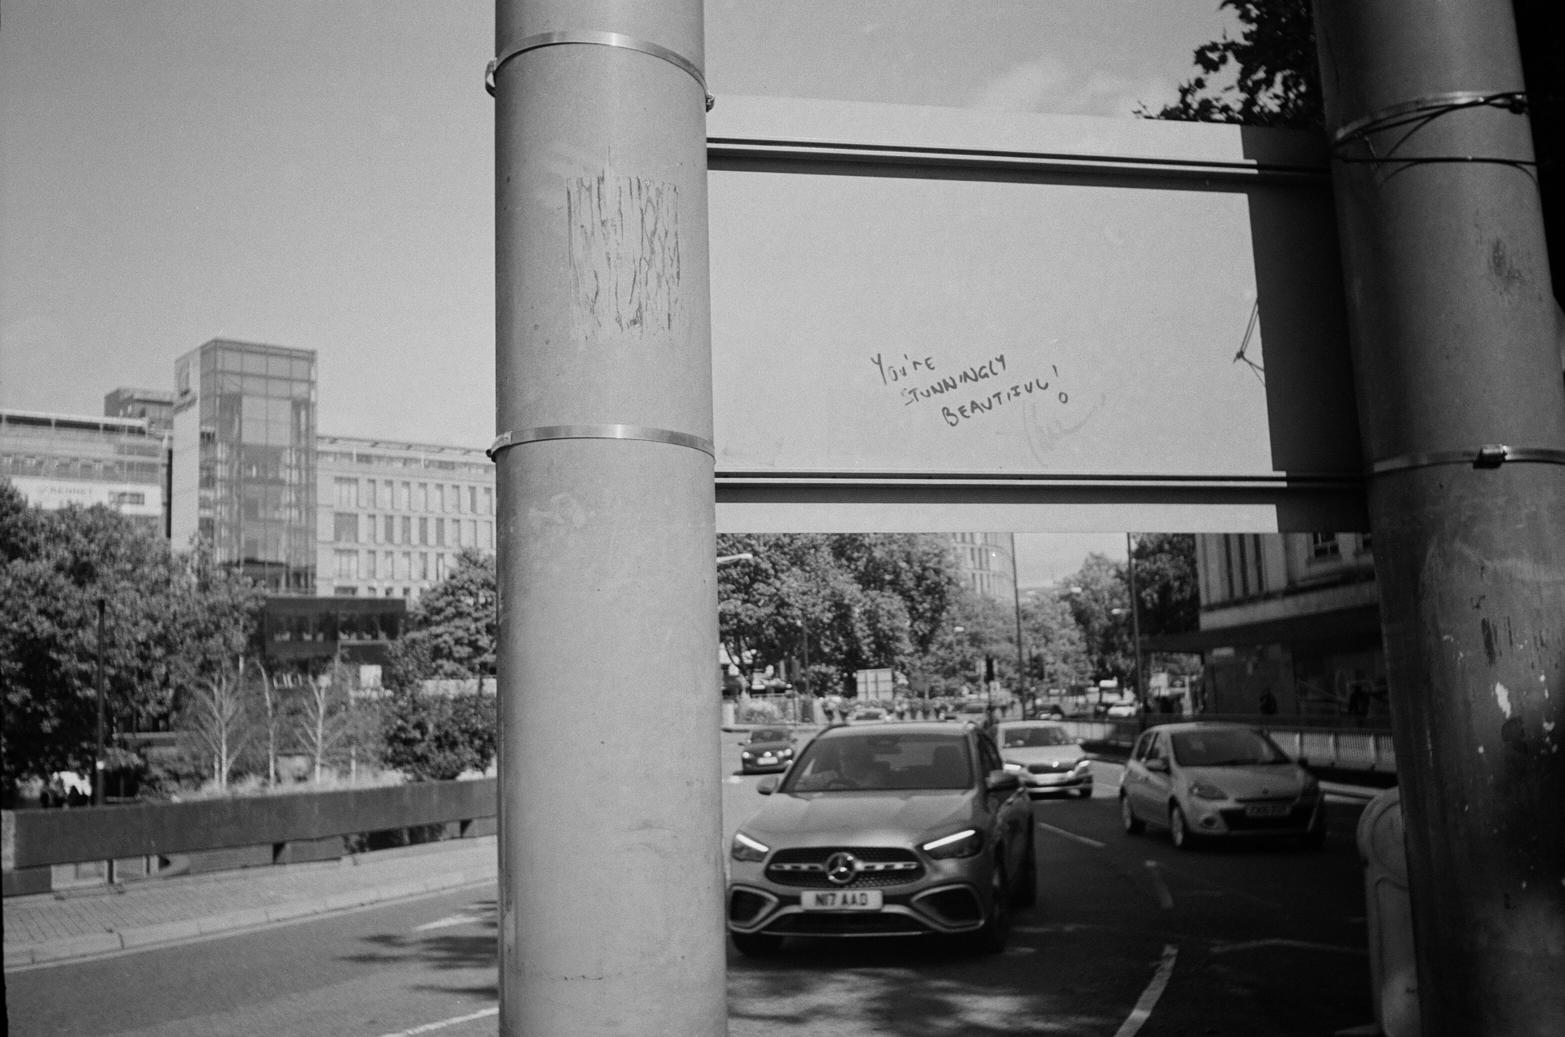 You're
STUNNINGLY
BEAUTIFUL!
N17 AAD